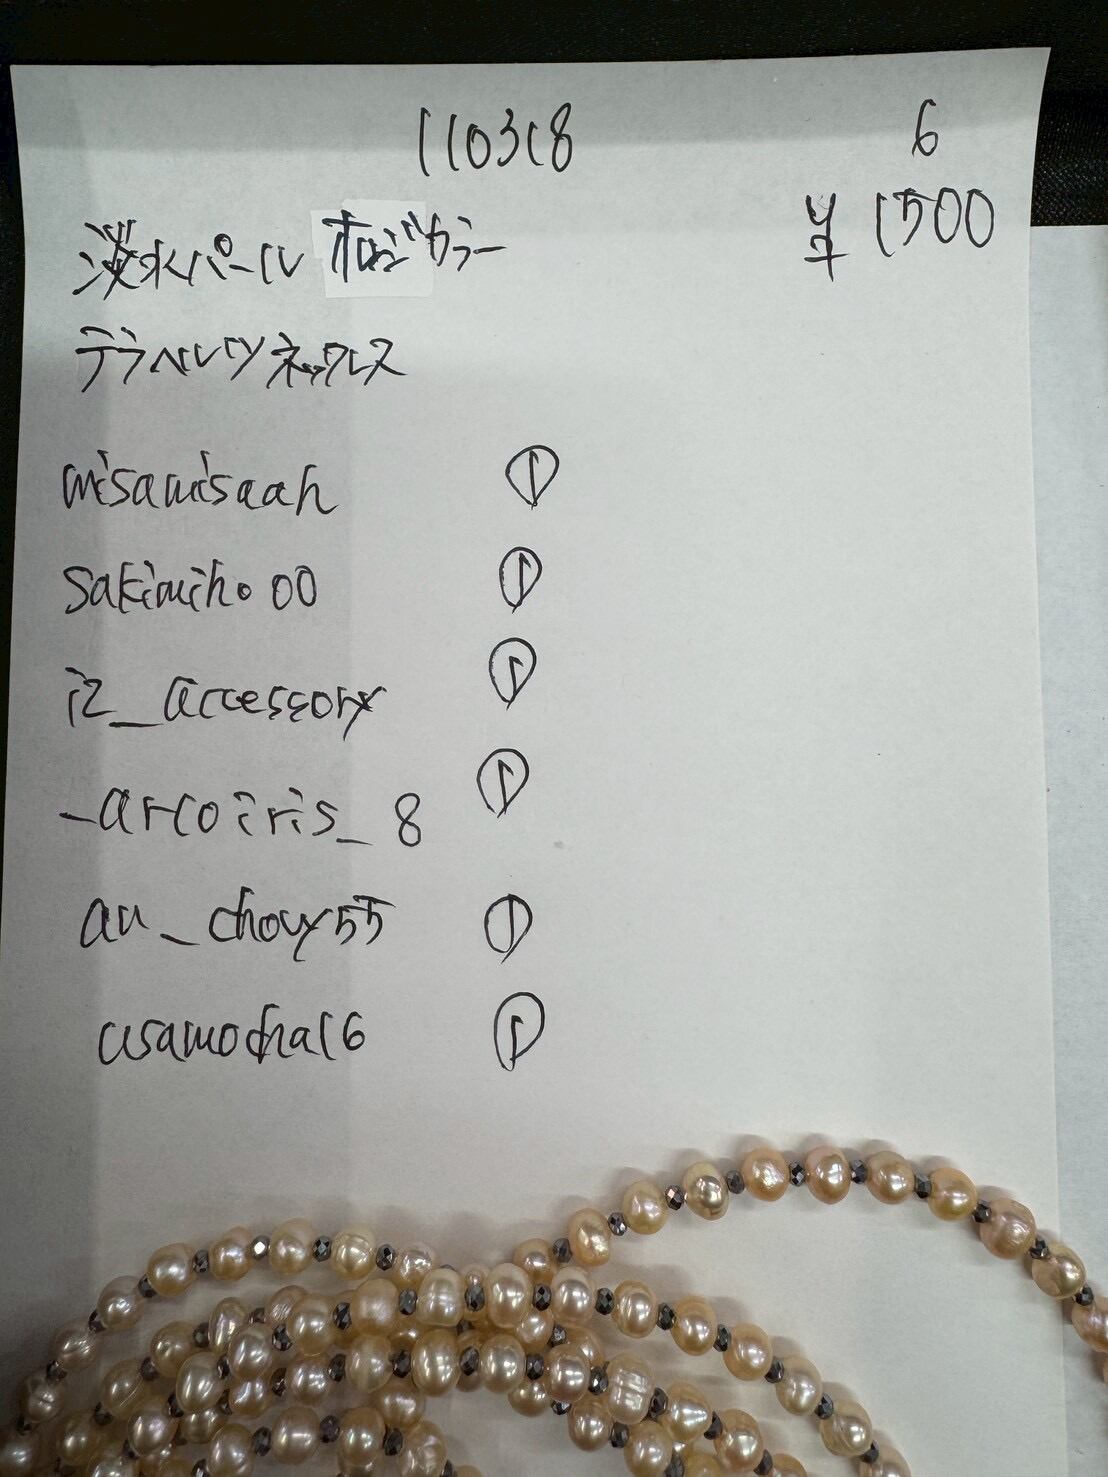 110318 6
淡水パール オロジカラー ¥1500
テラヘルツネックレス
misamisaah ①
sakimiho00 ①
iz_accessory ①
_arcoiris_8 ①
au_chouy55 ①
usamocha16 ①